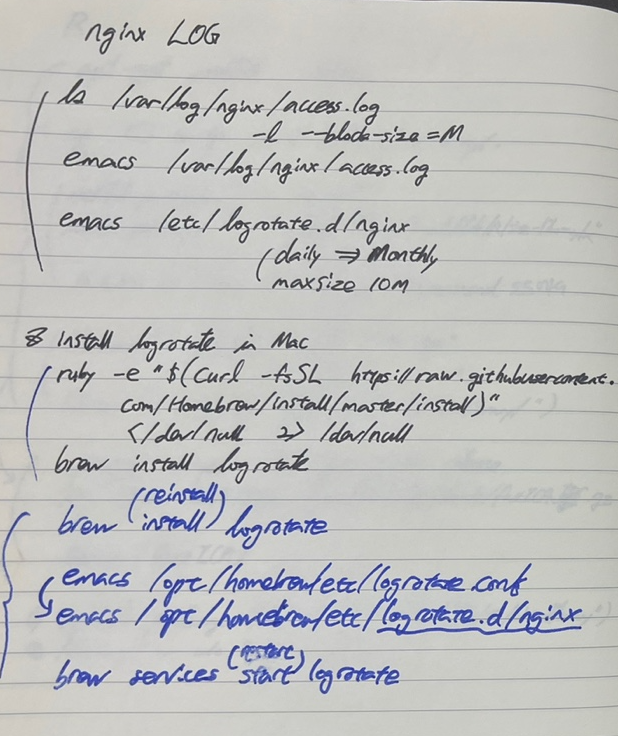 nginx LOG
ls /var/log/nginx/access.log
-l --block-size=M
emacs /var/log/nginx/access.log
emacs /etc/logrotate.d/nginx
(daily ⇒ Monthly
maxsize 10M
* install logrotate in Mac
ruby -e "$(curl -fsSL https://raw.githubusercontent.
com/Homebrew/install/master/install)"
</dev/null 2> /dev/null
brew install logrotate
(reinstall)
brew install logrotate
emacs /opt/homebrew/etc/logrotate.conf
emacs /opt/homebrew/etc/logrotate.d/nginx
(restart)
brew services start logrotate